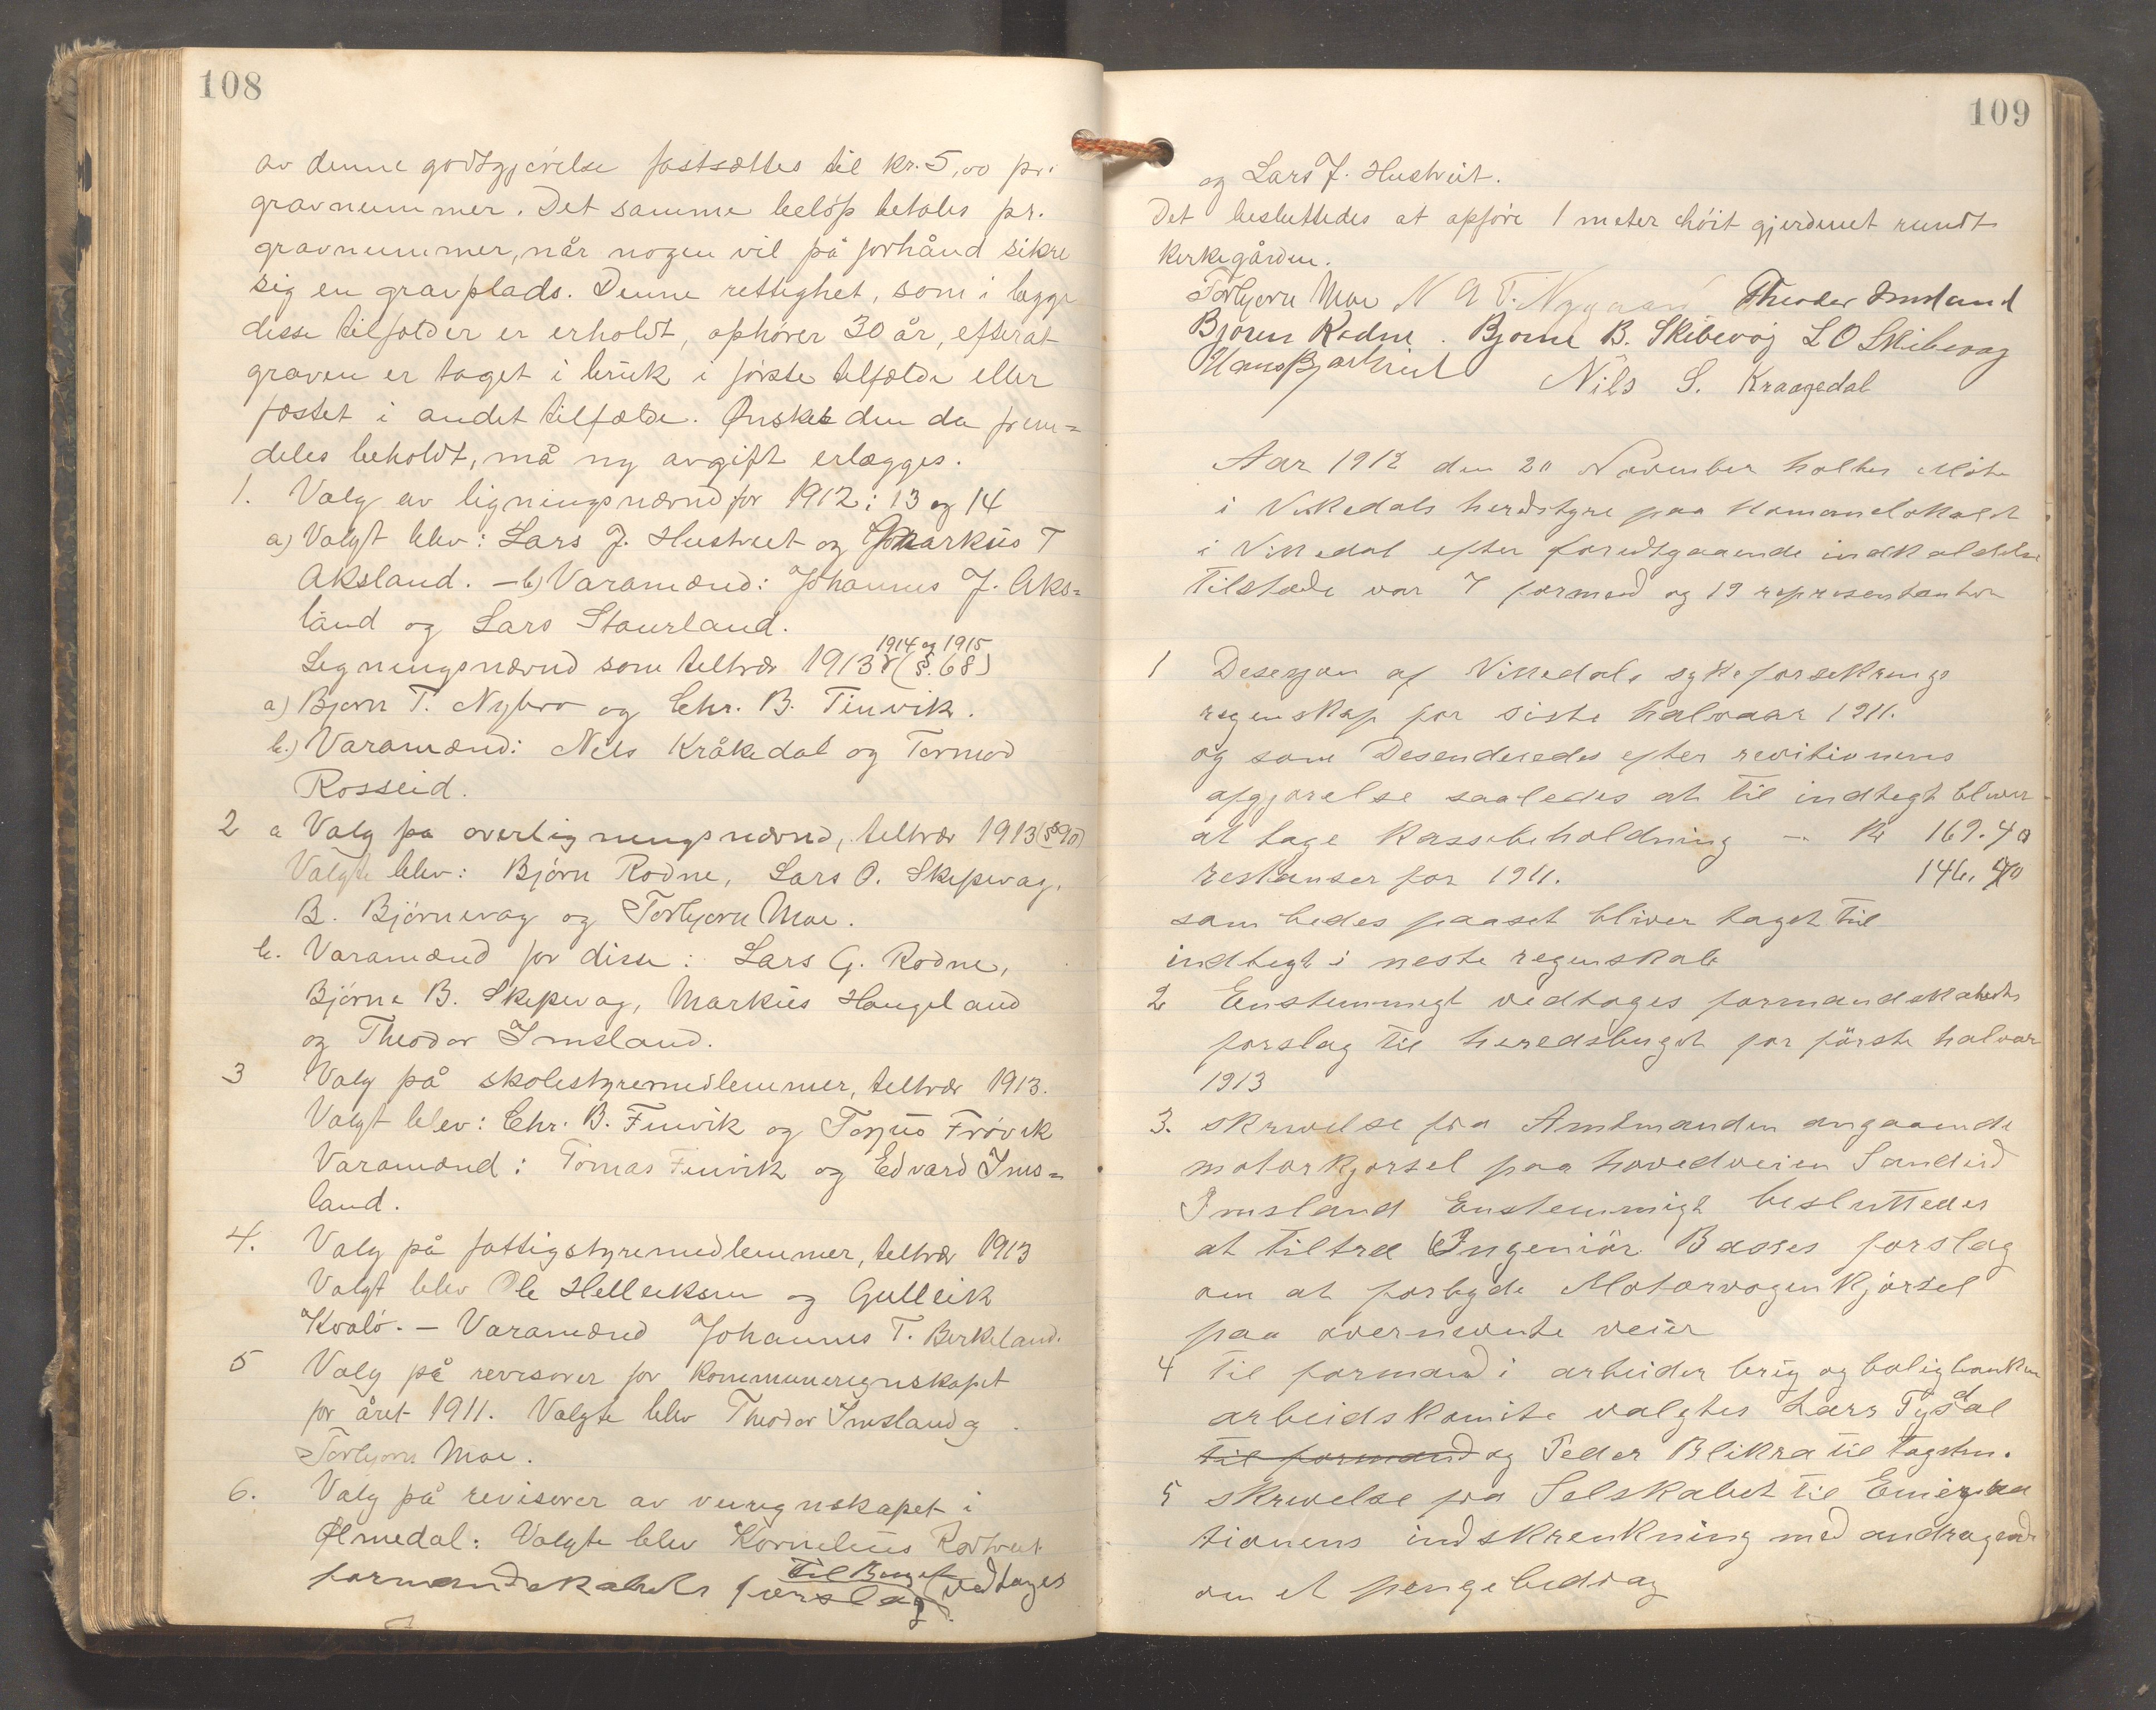 108
av denne godtgjørelse fastsættes til kr. 5,00 pr.
gravnummer. Det samme beløp betales pr.
gravnummer, når nogen vil på forhånd sikre
sig en gravplads. Denne rettighet, som i begge
disse tilfælder er erholdt, ophører 30 år, efterat
graven er taget i bruk i første tilfælde eller
fæstet i andet tilfælde. Ønskes den da frem=
deles beholdt, må ny avgift erlægges.
1. Valg av ligningsnævnd for 1912: 13 og 14
a) Valgt blev: Lars J. Hustveit og Markus T
Aksland. – b) Varamænd: Johannes J. Aks=
land og Lars Staurland.
1914 og 1915
Ligningsnævnd som tiltrær 1913 (§. 68)
a) Bjørn T. Nybro og Chr. B. Finvik.
b.) Varamænd: Nils Kråkedal og Tormod
Rosseid.
2 a Valg på overligningsnævnd, tiltrær 1913 (§90)
Valgte blev: Bjørn Rodne, Lars O. Skipevag,
B. Bjørnevag og Torbjørn Moe.
b. Varamænd for disse: Lars G. Rodne,
Bjørne B. Skipevag, Markus Haugeland
og Theodor Imsland.
3 Valg på skolestyremedlemmer, tiltrær 1913.
Valgt blev: Chr. B. Finvik og Torjus Frøvik
Varamænd: Tomas Finvik og Edvard Ims=
land.
4. Valg på fattigstyremedlemmer, tiltrær 1913
Valgt blev Ole Helleiksen og Gulleik
Kvalø. – Varamænd Johannes T. Birkeland.
5 Valg på revisorer for kommuneregnskapet
for året 1911. Valgte blev Theodor Imsland og
Torbjørn Moe.
6. Valg på revisorer av veiregnskapet i
Ølmedal: Valgte blev Kornelius Rodtveit
til
formandskabets forslag vedtages
109
og Lars J. Hustveit.
Det besluttedes at opføre 1 meter høit gjerdenet rundt
kirkegården.
Torbjørn Moe N A T. Nygaard Theodor Imsland
Bjøren Rodne. Bjorne B. Skibevåg L O Skibevag
Hans Nils S. Kraagedal
Aar 1912 den 20 November holtes Møte
i Vikedals herdstyre paa Komunelokalet
i Vikedal efter forutgaaende indkaldelse
Tilstæde var 7 formend og 19 representanter
1 Desesjon af Vikedals sykeforsekrings
regenskap for siste halvaar 1911.
og som Desenderedes efter revitionens
afgjørelse saaledes at til indtegt bliver
at tage Kassebeholdning – Kr 169.40
restanser for 1911. 146.70
som bedes paaset bliver taget til
indtegt i neste regenskab
2 Enstemmigt vedtoges formandskabets
forslag til heredsbuget for förste halvaar
1913
3. skrivelse fra Amtmanden angaaende
motorkjørsel paa hovedveien Sandeid
Imsland Enstemmigt besluttedes
at tiltræ Ingeniör Basses forslag
om at forbyde Motorvogen kjørsel
paa overnevnte veier
4 til formand i arbeider brug og boligbanken
arbeidskomite valgtes Lars Tysdal
til formand og Peder Blikra til
5 skrivelse fra Selskabet til Emigra
tionens indskrenkning med andragende
om et pengebedrag